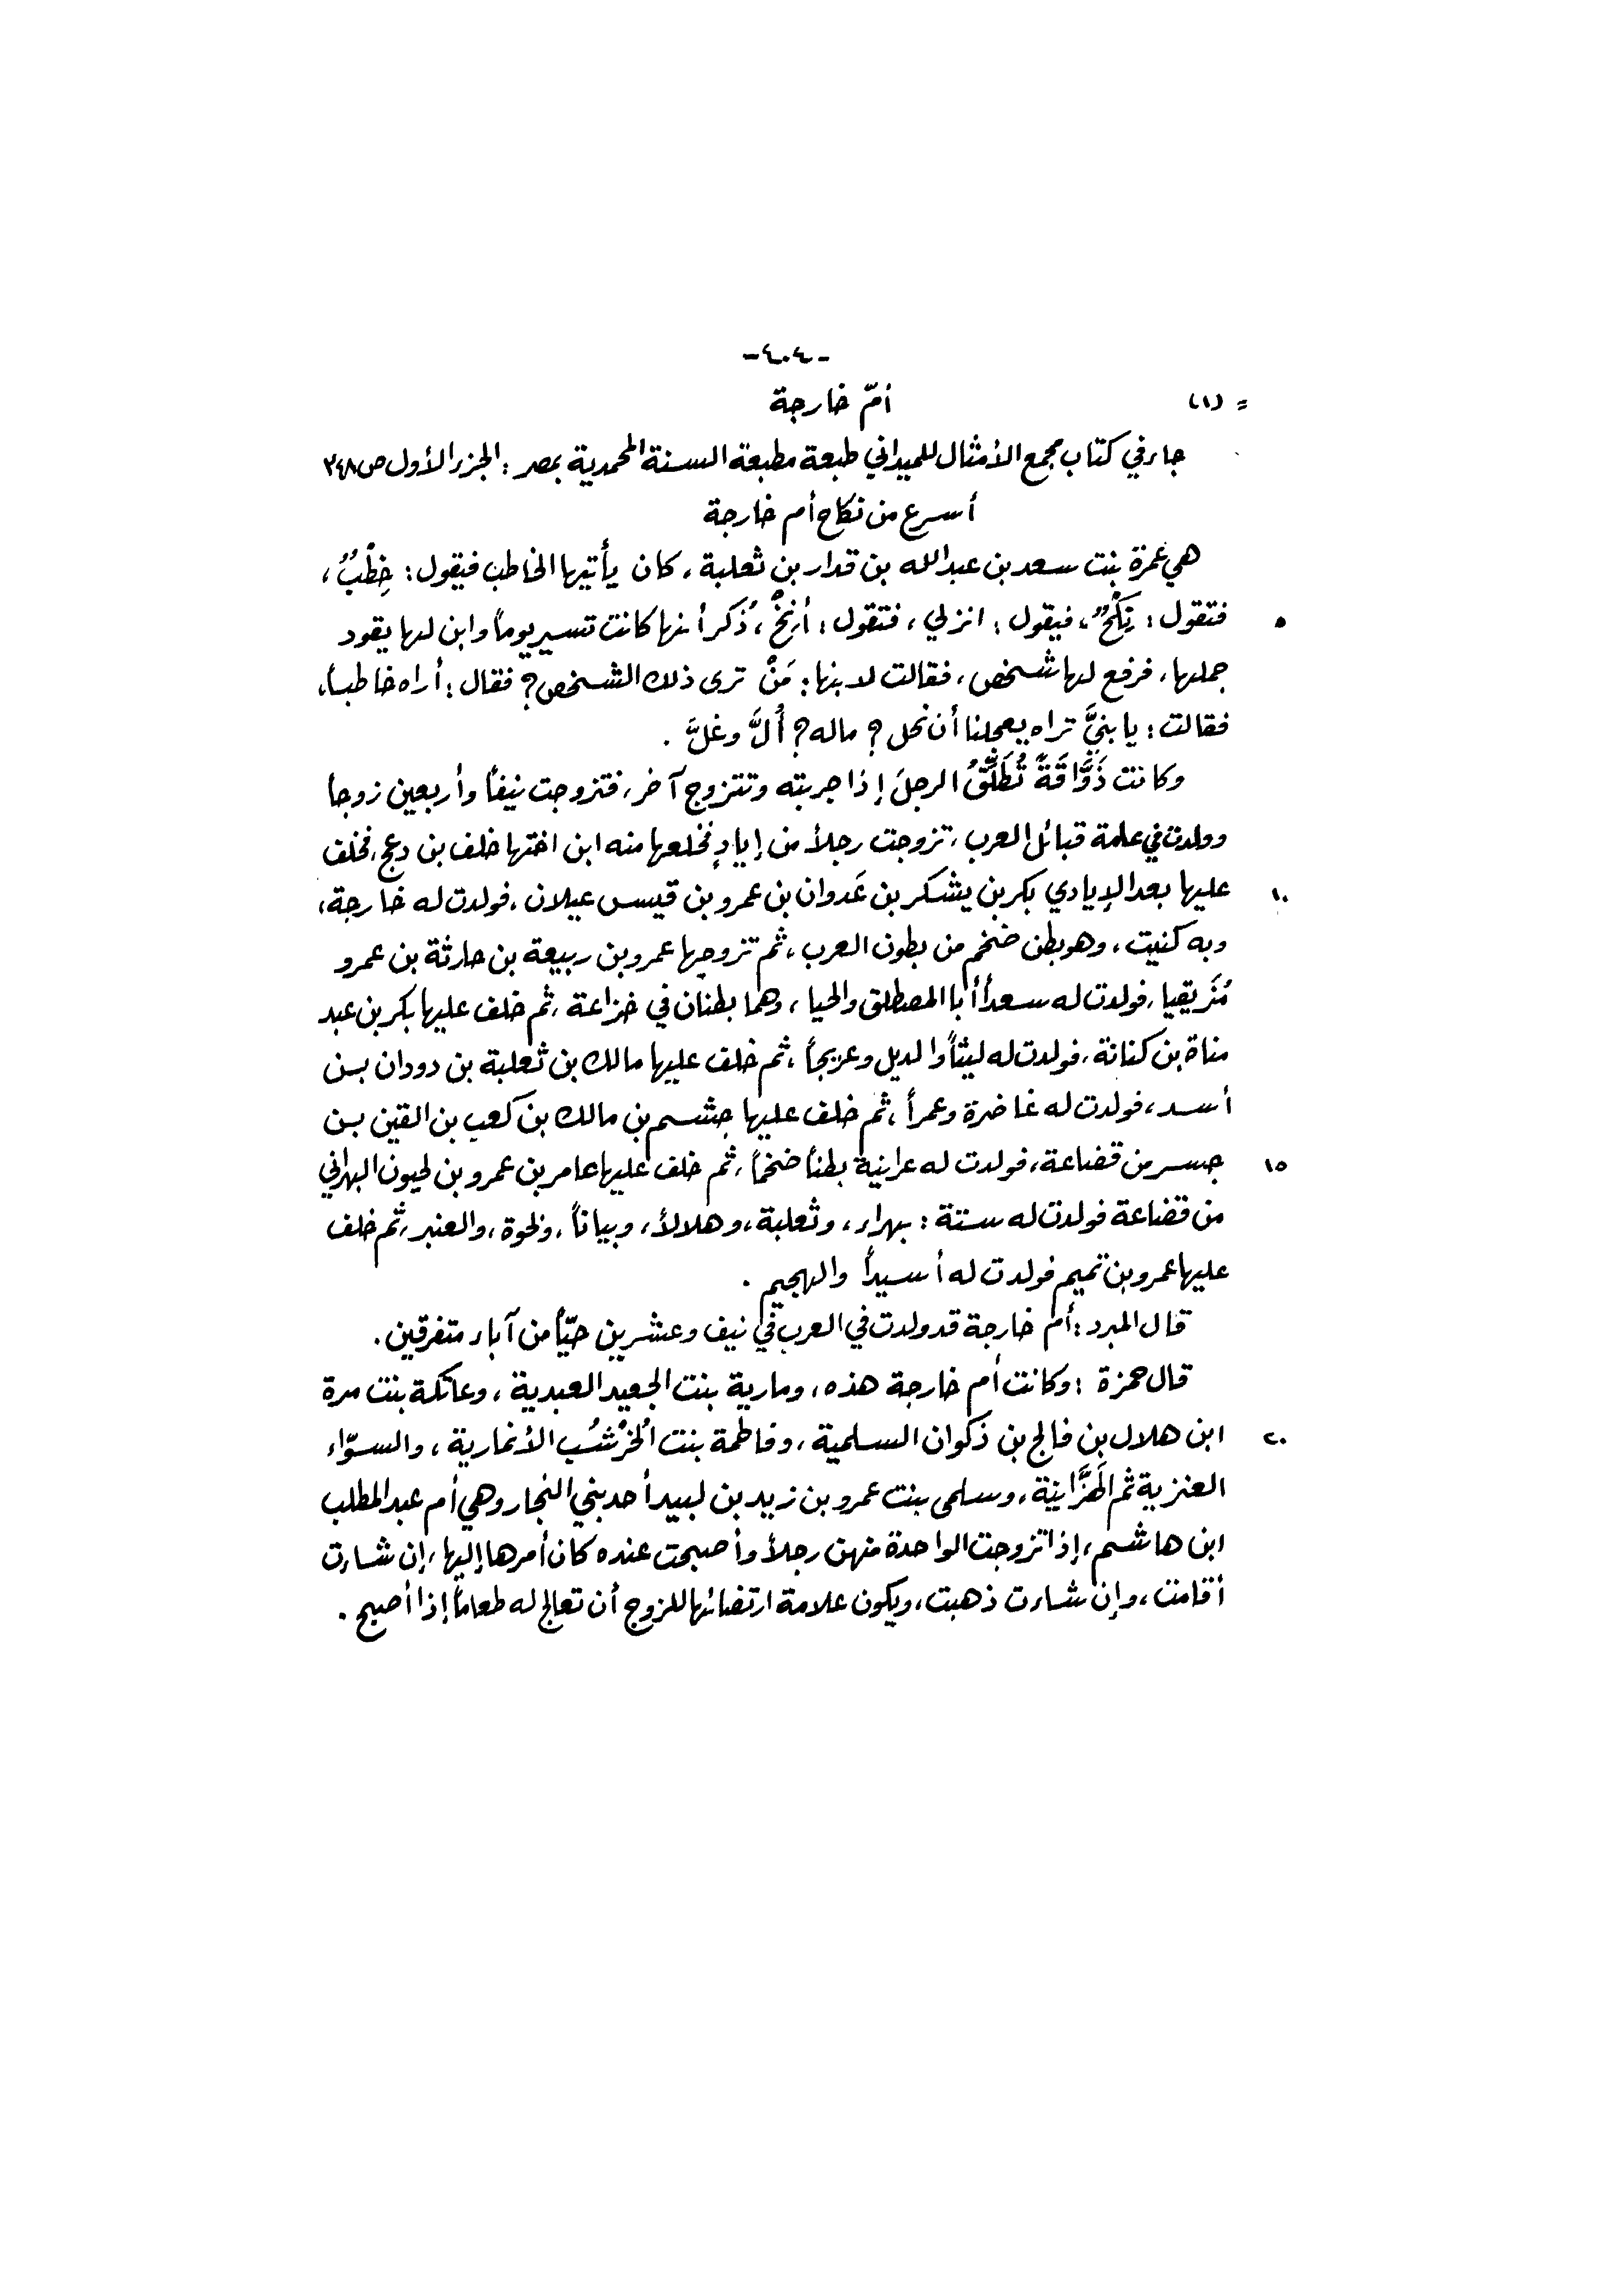 -٤٠٤-
= (١) أمّ خارجة
جاء في كتاب مجمع الأمثال للميداني طبعة مطبعة السنة المحمدية بمصر : الجزء الأول ص ٣٤٨
أسرع من نكاح أم خارجة
هي عمرة بنت سعد بن عبد الله بن قدار بن ثعلبة ، كان يأتيها الخاطب فيقول : خِطْبٌ ،
٥ فتقول : نِكْحٌ ، فيقول : انزلي ، فتقول : أنِخْ ، ذُكر أنها كانت تسير يوماً وابن لها يقود
جملها ، فرفع لها شخص ، فقالت لابنها : مَنْ ترى ذلك الشخص ؟ فقال : أراه خاطباً ،
فقالت : يا بنيَّ تراه يعجلنا أن نحل ؟ ماله ؟ أُلَّ وغُلَّ .
وكانت ذَوَّاقَةً تُطَلِّقُ الرجلَ إذا جربته وتتزوج آخر ، فتزوجت نيفاً وأربعين زوجاً
وولدت في عامة قبائل العرب ، تزوجت رجلاً من إيادٍ فخلعها منه ابن اختها خلف بن دعج ، فخلف
١٠ عليها بعد الإيادي بكر بن يشكر بن عَدوان بن عمرو بن قيس عيلان ، فولدت له خارجة ،
وبه كنيت ، وهو بطن ضخم من بطون العرب ، ثم تزوجها عمرو بن ربيعة بن حارثة بن عمرو
مُزَيقيا ، فولدت له سعداً أبا المصطلق والحيا ، وهما بطنان في خزاعة ، ثم خلف عليها بكر بن عبد
مناة بن كنانة ، فولدت له ليثاً والديل وعريجاً ، ثم خلف عليها مالك بن ثعلبة بن دودان بن
أسد ، فولدت له غاضرة وعمراً ، ثم خلف عليها جشم بن مالك بن كعب بن القين بن
١٥ جسر من قضاعة ، فولدت له عرانية بطناً ضخماً ، ثم خلف عليها عامر بن عمرو بن لحيون البهراني
من قضاعة فولدت له ستة : بهراء ، وثعلبة ، وهلالاً ، وبياناً ، ولخوة ، والعنبر ، ثم خلف
عليها عمرو بن تميم فولدت له أسيداً والهجيم .
قال المبرد : أم خارجة قد ولدت في العرب في نيف وعشرين حيّاً من آباء متفرقين .
قال حمزة : وكانت أم خارجة هذه ، ومارية بنت الجعيد العبدية ، وعاتكة بنت مرة
٢٠ ابن هلال بن فالج بن ذكوان السلمية ، وفاطمة بنت الخُرْشُب الأنمارية ، والسوّاء
العنزية ثم الهَزَّانية ، وسلمى بنت عمرو بن زيد بن لبيد أحد بني النجار وهي أم عبد المطلب
ابن هاشم ، إذا تزوجت الواحدة منهن رجلاً وأصبحت عنده كان أمرها إليها ، إن شاءت
أقامت ، وإن شاءت ذهبت ، ويكون علامة ارتضائها للزوج أن تعالج له طعاماً إذا أصبح .